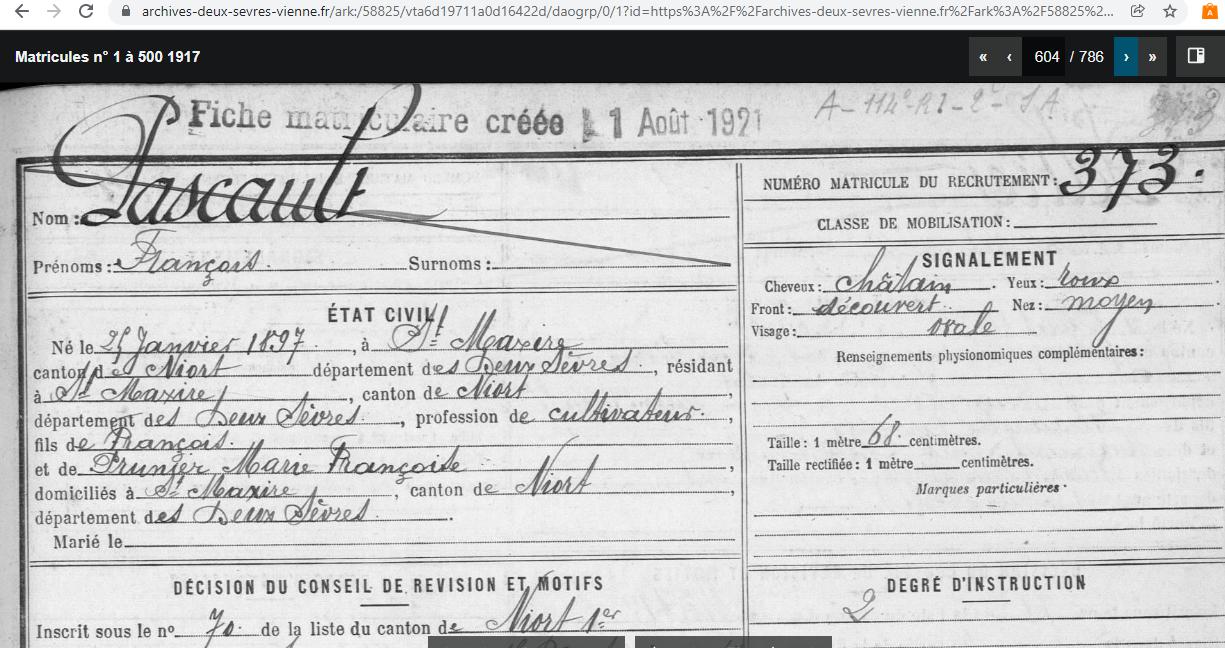 archives-deux-sevres-vienne.fr/ark:/58825/vta6d19711a0d16422d/daogrp/0/1?id=https%3A%2F%2Farchives-deux-sevres-vienne.fr%2Fark%3A%2F58825%2...
Matricules n° 1 à 500 1917
« ‹ 604 / 786 › »
Fiche matriculaire créée 1 Août 1921
A-114e RI-2e-SA
NUMÉRO MATRICULE DU RECRUTEMENT: 373.
CLASSE DE MOBILISATION:
Nom: Pascault
Prénoms: François. Surnoms:
ÉTAT CIVIL
Né le 25 Janvier 1897, à St Maxire
canton de Niort département des Deux Sèvres, résidant
à St Maxire, canton de Niort,
département des Deux Sèvres, profession de cultivateur.,
fils de François.
et de Prunier Marie Françoise,
domiciliés à St Maxire, canton de Niort,
département des Deux Sèvres.
Marié le
SIGNALEMENT
Cheveux: châtain. Yeux: roux.
Front: découvert. Nez: moyen
Visage: ovale
Renseignements physionomiques complémentaires:
Taille: 1 mètre 68. centimètres.
Taille rectifiée: 1 mètre centimètres.
Marques particulières:
DÉCISION DU CONSEIL DE REVISION ET MOTIFS
Inscrit sous le n° 70. de la liste du canton de Niort 1er
DEGRÉ D'INSTRUCTION
2